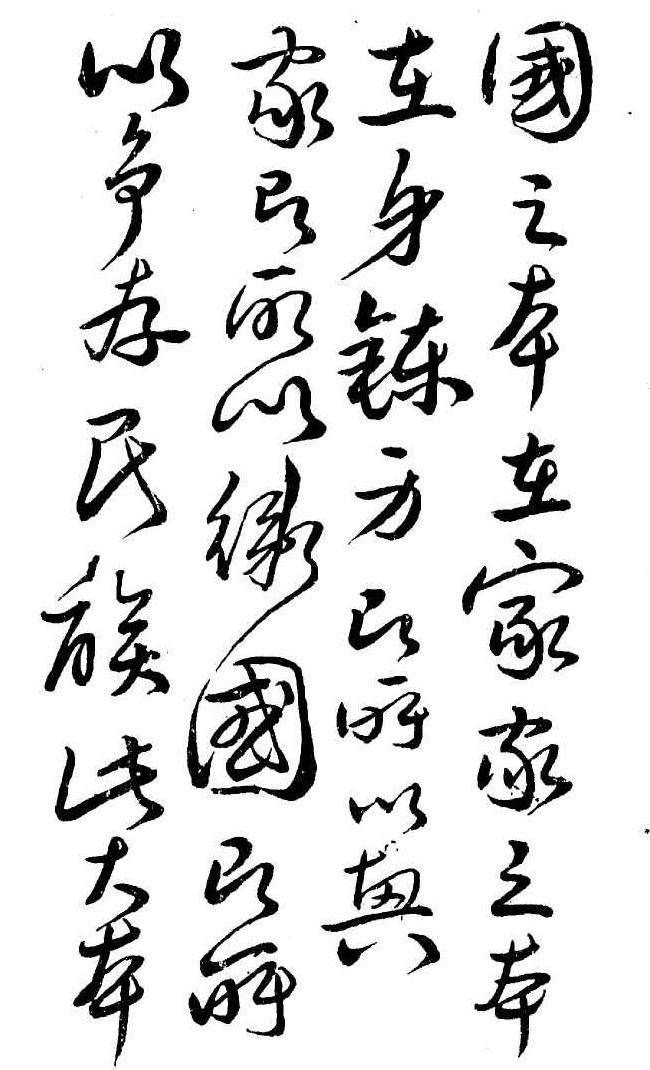 國之本在家家之本
在身鍊身即所以興
家即所以衛國即所
以爭存民族此大本